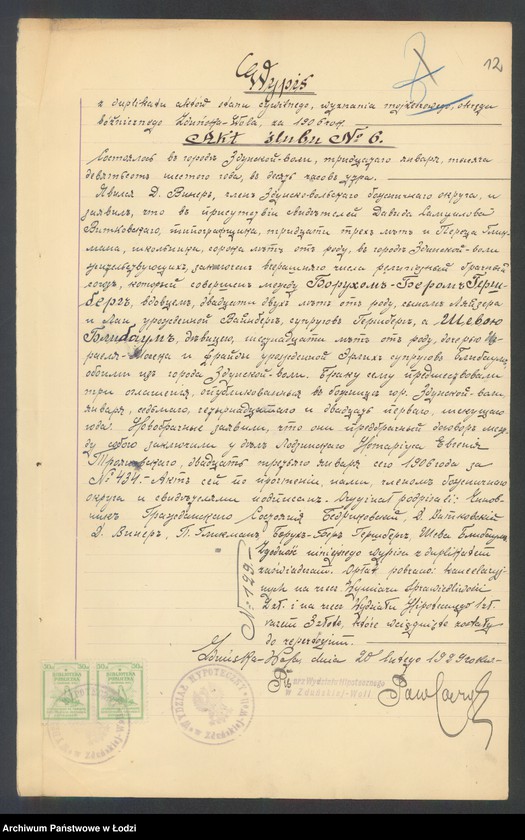 12
Wypis
z duplikatu aktów stanu cywilnego, wyznania mojżeszowego, okręgu
bożniczego Zduńska-Wola, za 1906 rok.
Akt ślubu № 6.
Состоялось въ городѣ Здунской-воли, тридцатаго января, тысяча
девятьсотъ шестого года, въ десять часовъ утра.
Явился Д. Винеръ, членъ Здунско-вольскаго божничнаго округа, и
заявилъ, что въ присутствіи свидѣтелей Давида
Витковскаго, типографщика, тридцати трехъ лѣтъ и Переца Глик-
мана, школьника, сорока лѣтъ отъ роду, въ городѣ Здунской-воли
жительствующихъ, заключенъ вчерашняго числа религіозный брачный
союзъ, который совершенъ между Борухомъ-Беромъ Герш-
бергъ, вдовцемъ, двадцати двухъ лѣтъ отъ роду, сыномъ Лейзера
и урожденной Вайнбергъ, супруговъ Гершбергъ, а Шевою
Блибаумъ, дѣвицею, лѣтъ отъ роду, дочерью Из-
раеля- и Фрайды урожденной супруговъ Блибаумъ,
обоими изъ города Здунской-воли. Браку сему предшествовали
три оглашенія, опубликованныя въ божницѣ гор. Здунской-воли,
января, седьмаго, четырнадцатаго и двадцать перваго, текущаго
года. Новобрачные заявили, что они предбрачный договоръ меж-
ду собою заключили у Лодзинскаго Нотаріуса Евгенія
двадцать третьяго января сего 1906 года за
№ 434.- Актъ сей по прочтеніи, нами, членомъ божничнаго
округа и свидѣтелями подписанъ. Oryginał podpisali: Чинов-
никъ Гражданскаго Состоянія Д. Витковскій
Д. Винеръ, П. Гликманъ, Борухъ-Беръ Гершбергъ, Шева Блибаумъ
Zgodność niniejszego wypisu z duplikatem
zaświadczam. Opłat pobrano: kancelaryj-
nych na rzecz Wymiaru Sprawiedliwości
2 zł. i na rzecz Wydziału Hipotecznego 1 zł.
razem 3 złote, które wciągnięte zostały
do repertorjum.
№ 199
Zduńska-Wola, dnia 20 lutego 1939 roku.
Pisarz Wydziału Hipotecznego
w Zduńskiej-Woli
30 gr 30 gr
BIBLIOTEKA PUBLICZNA
BIBLIOTEKA PUBLICZNA
WYDZIAŁ HYPOTECZNY w Zduńskiej-Woli
Archiwum Państwowe w Łodzi